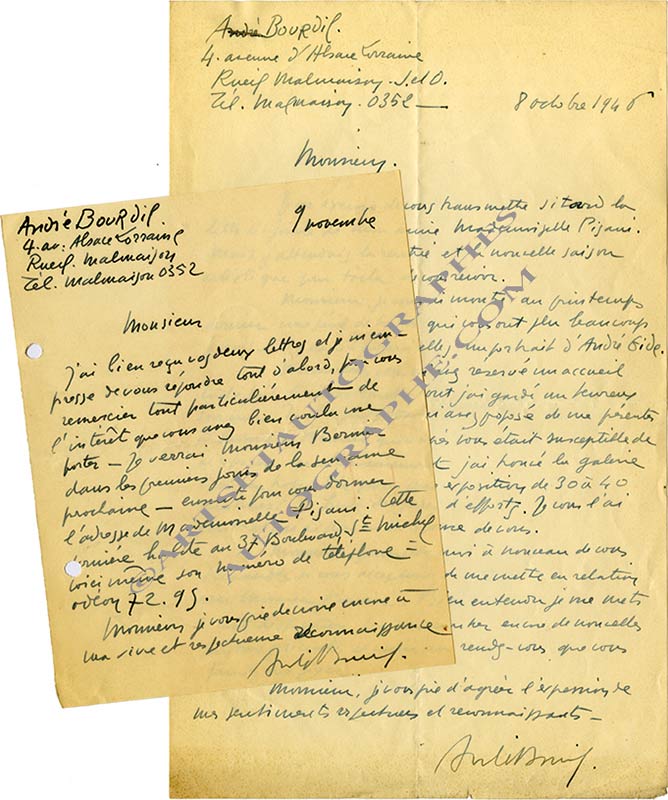 André BOURDIL.
4. avenue d'Alsace Lorraine
Rueil Malmaison. S. et O.
Tél. Malmaison 0352
8 octobre 1946
Monsieur,
vous transmettre si tard la
Mademoiselle Pijani.
et la nouvelle saison
Monsieur, au printemps
qui vous ont plu beaucoup
un portrait d'André Gide.
réservé un accueil
dont j'ai gardé un heureux
proposé de me présenter
vous était susceptible de
j'ai honoré la galerie
exposition de 30 à 40
d'efforts. Je vous l'ai
de vous.
à nouveau de vous
de me mettre en relation
entendu je me mets
encore de nouvelles
rendez-vous que vous
Monsieur, je vous prie d'agréer l'expression de
mes sentiments respectueux et reconnaissants_
André Bourdil.
André BOURDIL.
4. av: Alsace Lorraine
Rueil. Malmaison
Tél. Malmaison 0352
9 novembre
Monsieur
J'ai bien reçu vos deux lettres et je m'em-
presse de vous répondre tout d'abord, pour vous
remercier tout particulièrement de
l'intérêt que vous avez bien voulu me
porter _ Je verrai Monsieur
dans les premiers jours de la semaine
prochaine _ ensuite pour vous donner
l'adresse de Mademoiselle Pijani. Cette
dernière habite au 37 Boulevard St Michel
voici même son numéro de téléphone =
odéon 72.95.
Monsieur je vous prie de croire encore à
ma vive et respectueuse reconnaissance
André Bourdil.
©ARTSETAUTOGRAPHES
AUTOGRAPHE.COM